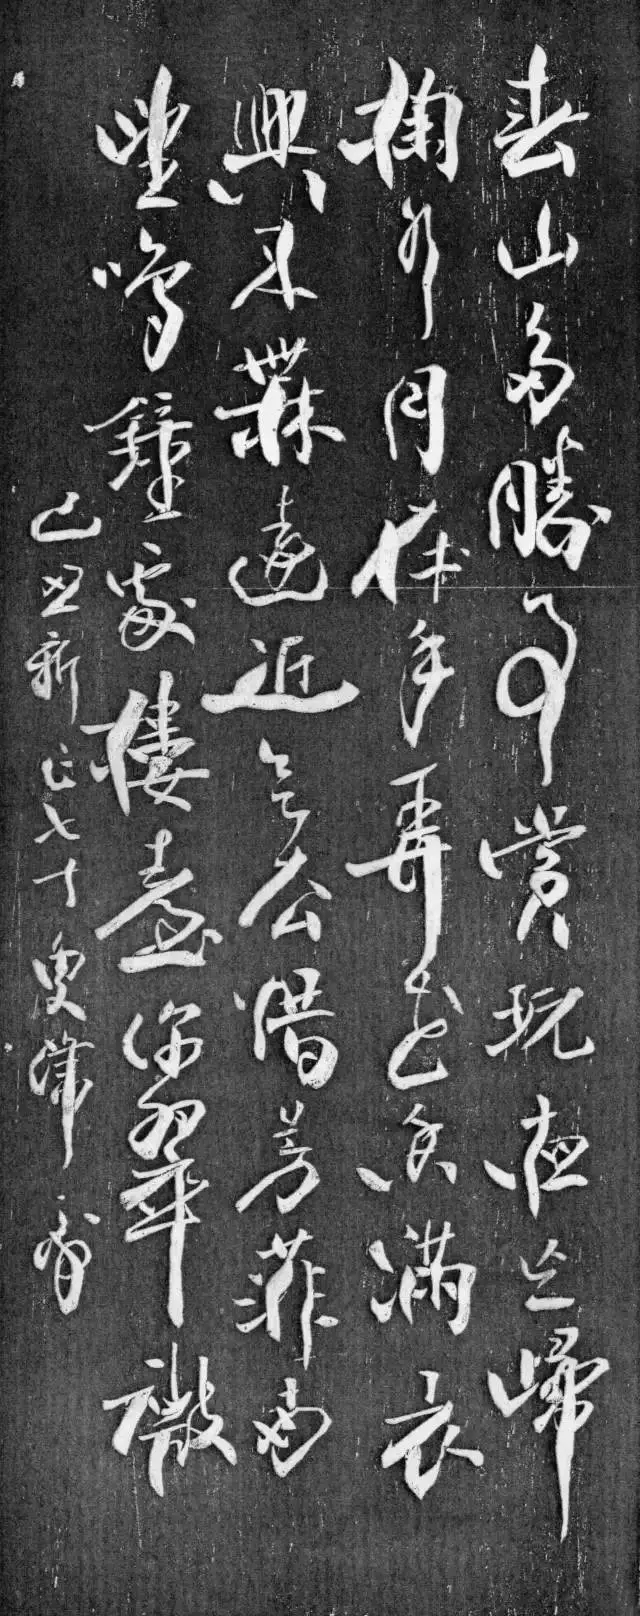 春山多勝事賞玩夜忘歸
掬水月在手弄花香滿衣
興來無遠近欲去惜芳菲南
望鳴鐘處樓臺深翠微
己丑新正七十叟